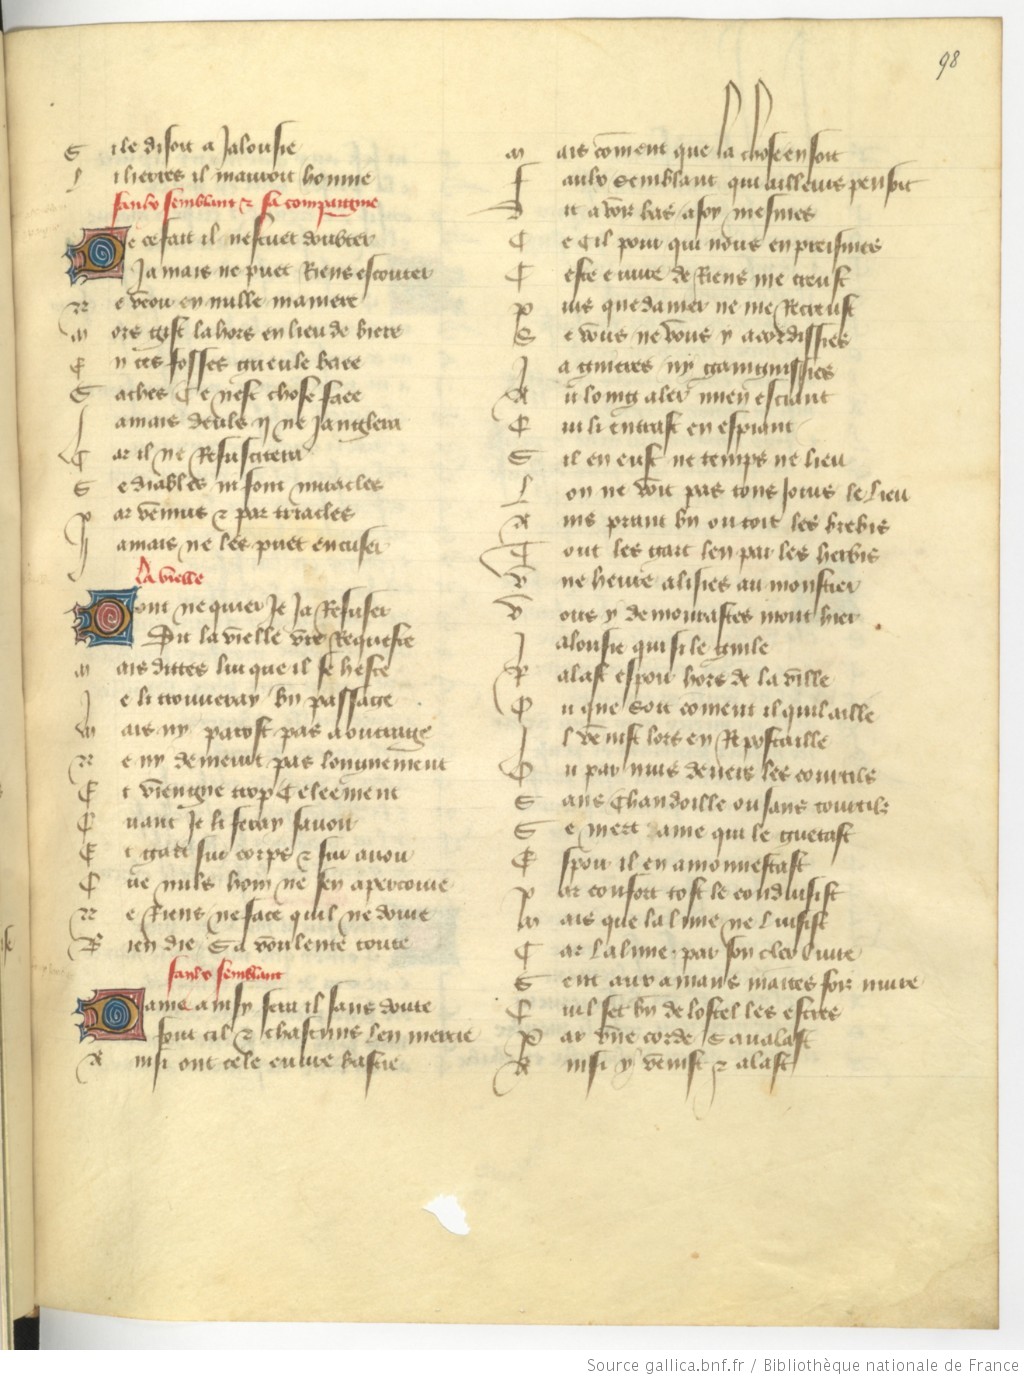 98
S ile disoit a Jalousie
I l iert es il mauroit honnie
faulx semblant & sa compaignie
D e ce fait il nescuet doubter
Jamais ne puet Riens escouter
N e veou en nulle maniere
M ors gist la hors en lieu de biere
E n ces fosses gueule baee
S aches Ce nest chose faee
J amais deuls ij ne Janglera
C ar il ne Resuscitera
S e diables ni font miracles
P ar venins & par triacles
J amais ne les puet encuser
La vielle
D ont ne quier Je Ja Refuser
Dit la vielle vre Requeste
M ais dittes lui que il se heste
J e li trouveray bn passage
M ais ny parost pas a oultrage
N e ny demeure pas longuement
E t viengne trop Celeement
Q uant Je li feray savoir
E t gart sur corps & sur avoir
Q ue nuls hom ne sen apercoive
N e Riens ne face quil ne doive
B ien die Sa voulente toute
faulx semblant
D ame ainsy sera il sans doute
Font cil & chascuns len mercie
A insi ont cele euvre bastie
M ais coment que la chose en soit
F aulx Semblant qui ailleurs pensoit
D it a voix bas a soy mesmes
S e Cil pour qui nous enpreismes
C este euvre de Riens me creust
P uis que damer ne me Recreust
S e vous ne vous y acordissies
J a guieres ny gaingnissies
A u loing aler mien esciant
Q uil i entrast en espiant
S il en eust ne temps ne lieu
L on ne voit pas tous Jours le Lieu
A ins prant bn ou toit les brebis
T out les gart len par les herbis
V ne heure alisies au monstier
V ous y demourastes mont hier
J alousie qui si le guile
R alast espoir hors de la ville
O u que soit coment il quil aille
J l venist lors en Repostaille
O u par nuis devers les courtils
S ans Chandoille ou sans tourtilz
S e mert ame qui le guetast
E spoir il en amonnestast
P ar confort tost le conduisist
M ais que la lune ne Luisist
C ar La lune par son cler Luire
S eut aux amans maites fois nuire
Q uil set bn de lostel les estres
P ar vne corde Savalast
A insi y venist & alast
Source gallica.bnf.fr / Bibliothèque nationale de France